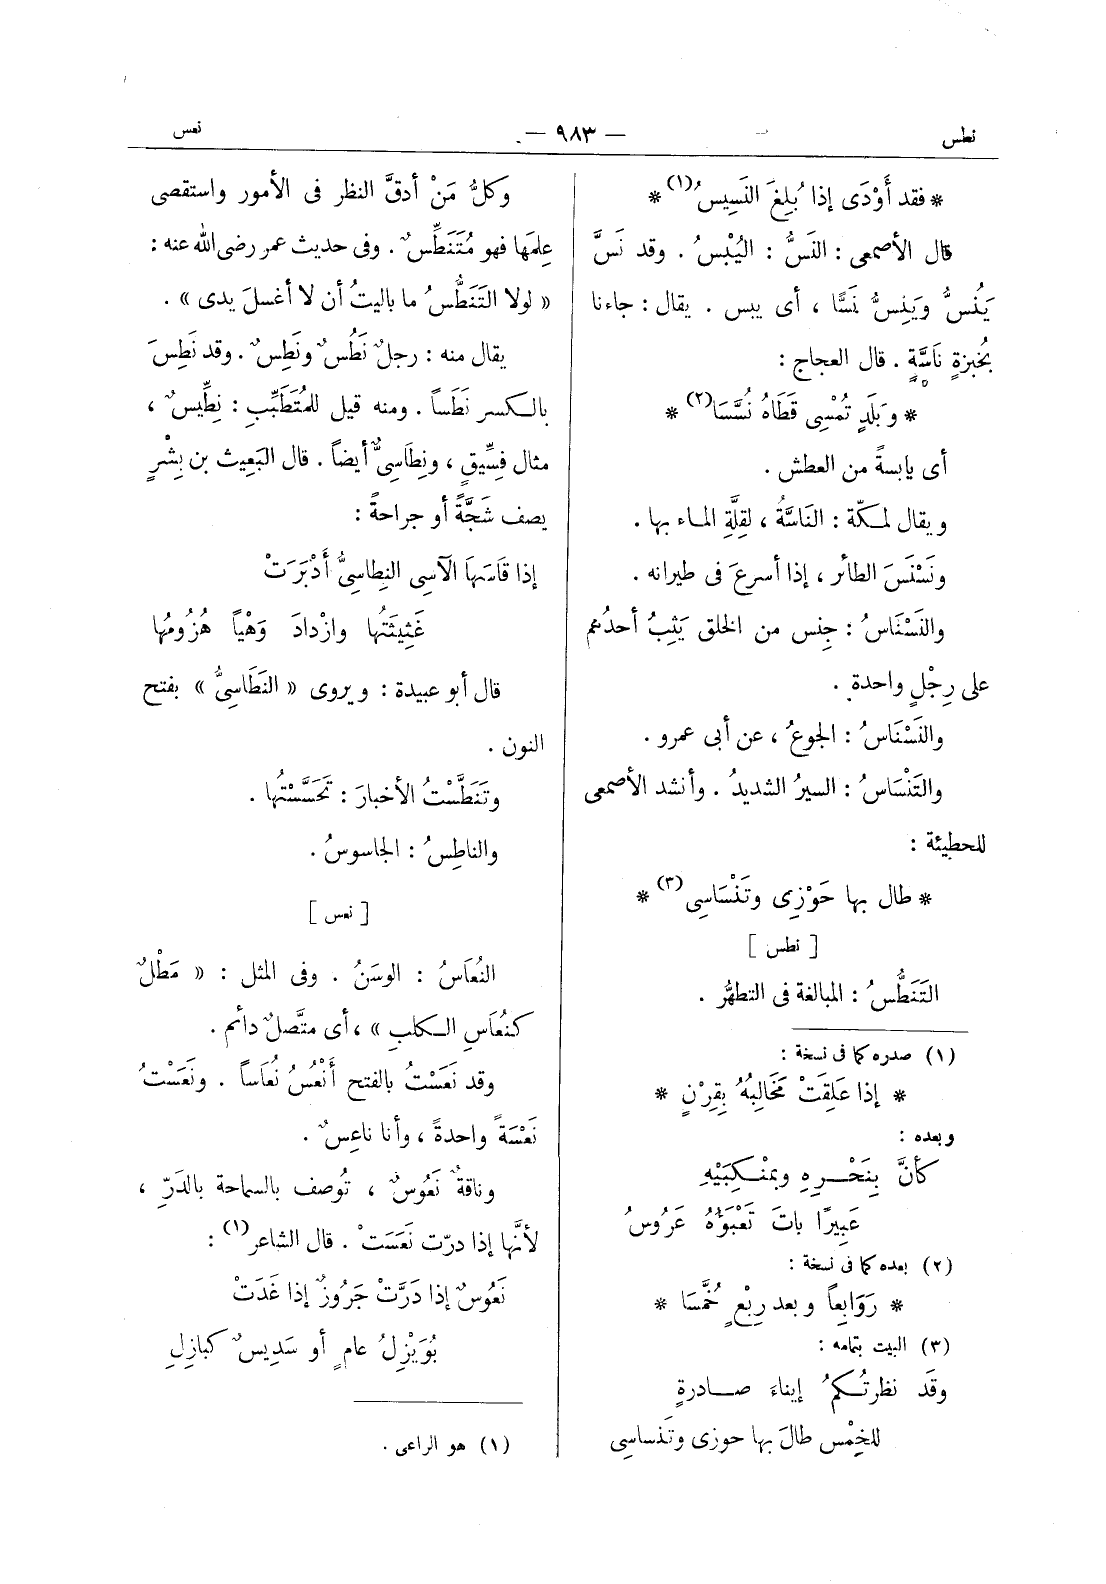 نطس
— ٩٨٣ —
نعس
* فقد أَوْدَى إذا بُلِغَ النَسِيسُ (١) *
قال الأصمعى : النَسُّ : اليُبْسُ . وقد نَسَّ
يَنُسُّ ويَنِسُّ نَسًّا ، أى يبس . يقال : جاءنا
بخُبزةٍ نَاسَّةٍ . قال العجاج :
* وبَلَدٍ تُمْسِى قَطَاهُ نُسَّسَا (٢) *
أى يابسةً من العطش .
ويقال لمكّة : النَاسَّةُ ، لقِلَّةِ الماء بها .
ونَسْنَسَ الطائر ، إذا أسرعَ فى طيرانه .
والنَسْنَاسُ : جِنس من الخلق يَثِبُ أحدُهم
على رِجْلٍ واحدة .
والنَسْنَاسُ : الجوعُ ، عن أبى عمرو .
والتَنْسَاسُ : السيرُ الشديدُ . وأنشد الأصمعى
للحطيئة :
* طال بها حَوْزِى وتَنْسَاسِى (٣) *
[ نطس ]
التَنَطُّسُ : المبالغة فى التطهُّر .
(١) صدره كما فى نسخة :
* إذا عَلِقَتْ مَخَالِبُهُ بِقِرْنٍ *
وبعده :
كأنَّ بِنَحْـرِهِ وبمَنْـكِبَيْهِ
عَبِيرًا باتَ تَعْبَؤُهُ عَرُوسُ
(٢) بعده كما فى نسخة :
* رَوَابِعاً وبعد رِبْعٍ خُمَّسَا *
(٣) البيت بتمامه :
وقَد نظرتُـكمُ إيناءَ صـادرةٍ
للخِمْس طالَ بها حوزى وتَنساسِى
وَكلُّ مَنْ أدقَّ النظر فى الأمور واستقصى
عِلمَها فهو مُتَنَطِّسٌ . وفى حديث عمر رضى الله عنه :
« لولا التَنَطُّسُ ما باليتُ أن لا أغسلَ يدى » .
يقال منه : رجلٌ نَطُسٌ ونَطِسٌ . وقد نَطِسَ
بالكسر نَطَساً . ومنه قيل للمُتَطَبِّبِ : نِطِّيسٌ ،
مثال فِسِّيقٍ ، ونِطَاسِىٌّ أيضاً . قال البَعِيث بن بِشْرٍ
يصف شَجَّةً أو جراحةً :
إذا قَاسَهَا الآسِى النِطاسِىُّ أَدْبَرَتْ
غَثِيثَتُها وازْدادَ وَهْياً هُزُومُها
قال أبو عبيدة : ويروى « النَطَاسِىُّ » بفتح
النون .
وتَنَطَّسْتُ الأخبارَ : تَحَسَّسْتُها .
والناطِسُ : الجاسوسُ .
[ نعس ]
النُعَاسُ : الوسَنُ . وفى المثل : « مَطْلٌ
كنُعَاسِ الـكلبِ » ، أى متَّصلٌ دائم .
وقد نَعَسْتُ بالفتح أَنْعُسُ نُعَاساً . ونَعَسْتُ
نَعْسَةً واحدةً ، وأنا ناعِسٌ .
وناقةٌ نَعُوسٌ ، تُوصف بالسماحة بالدَرِّ ،
لأنَّها إذا درّت نَعَسَتْ . قال الشاعر (١) :
نَعُوسٌ إذا دَرَّتْ جَرُوزٌ إذا غَدَتْ
بُوَيْزِلُ عامٍ أو سَدِيسٌ كبازِلِ
(١) هو الراعى .